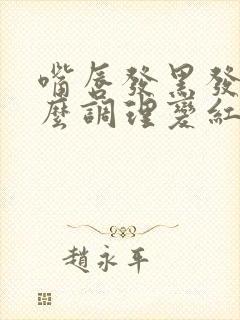 嘴唇發黑發
麼調理變紅
趙永平